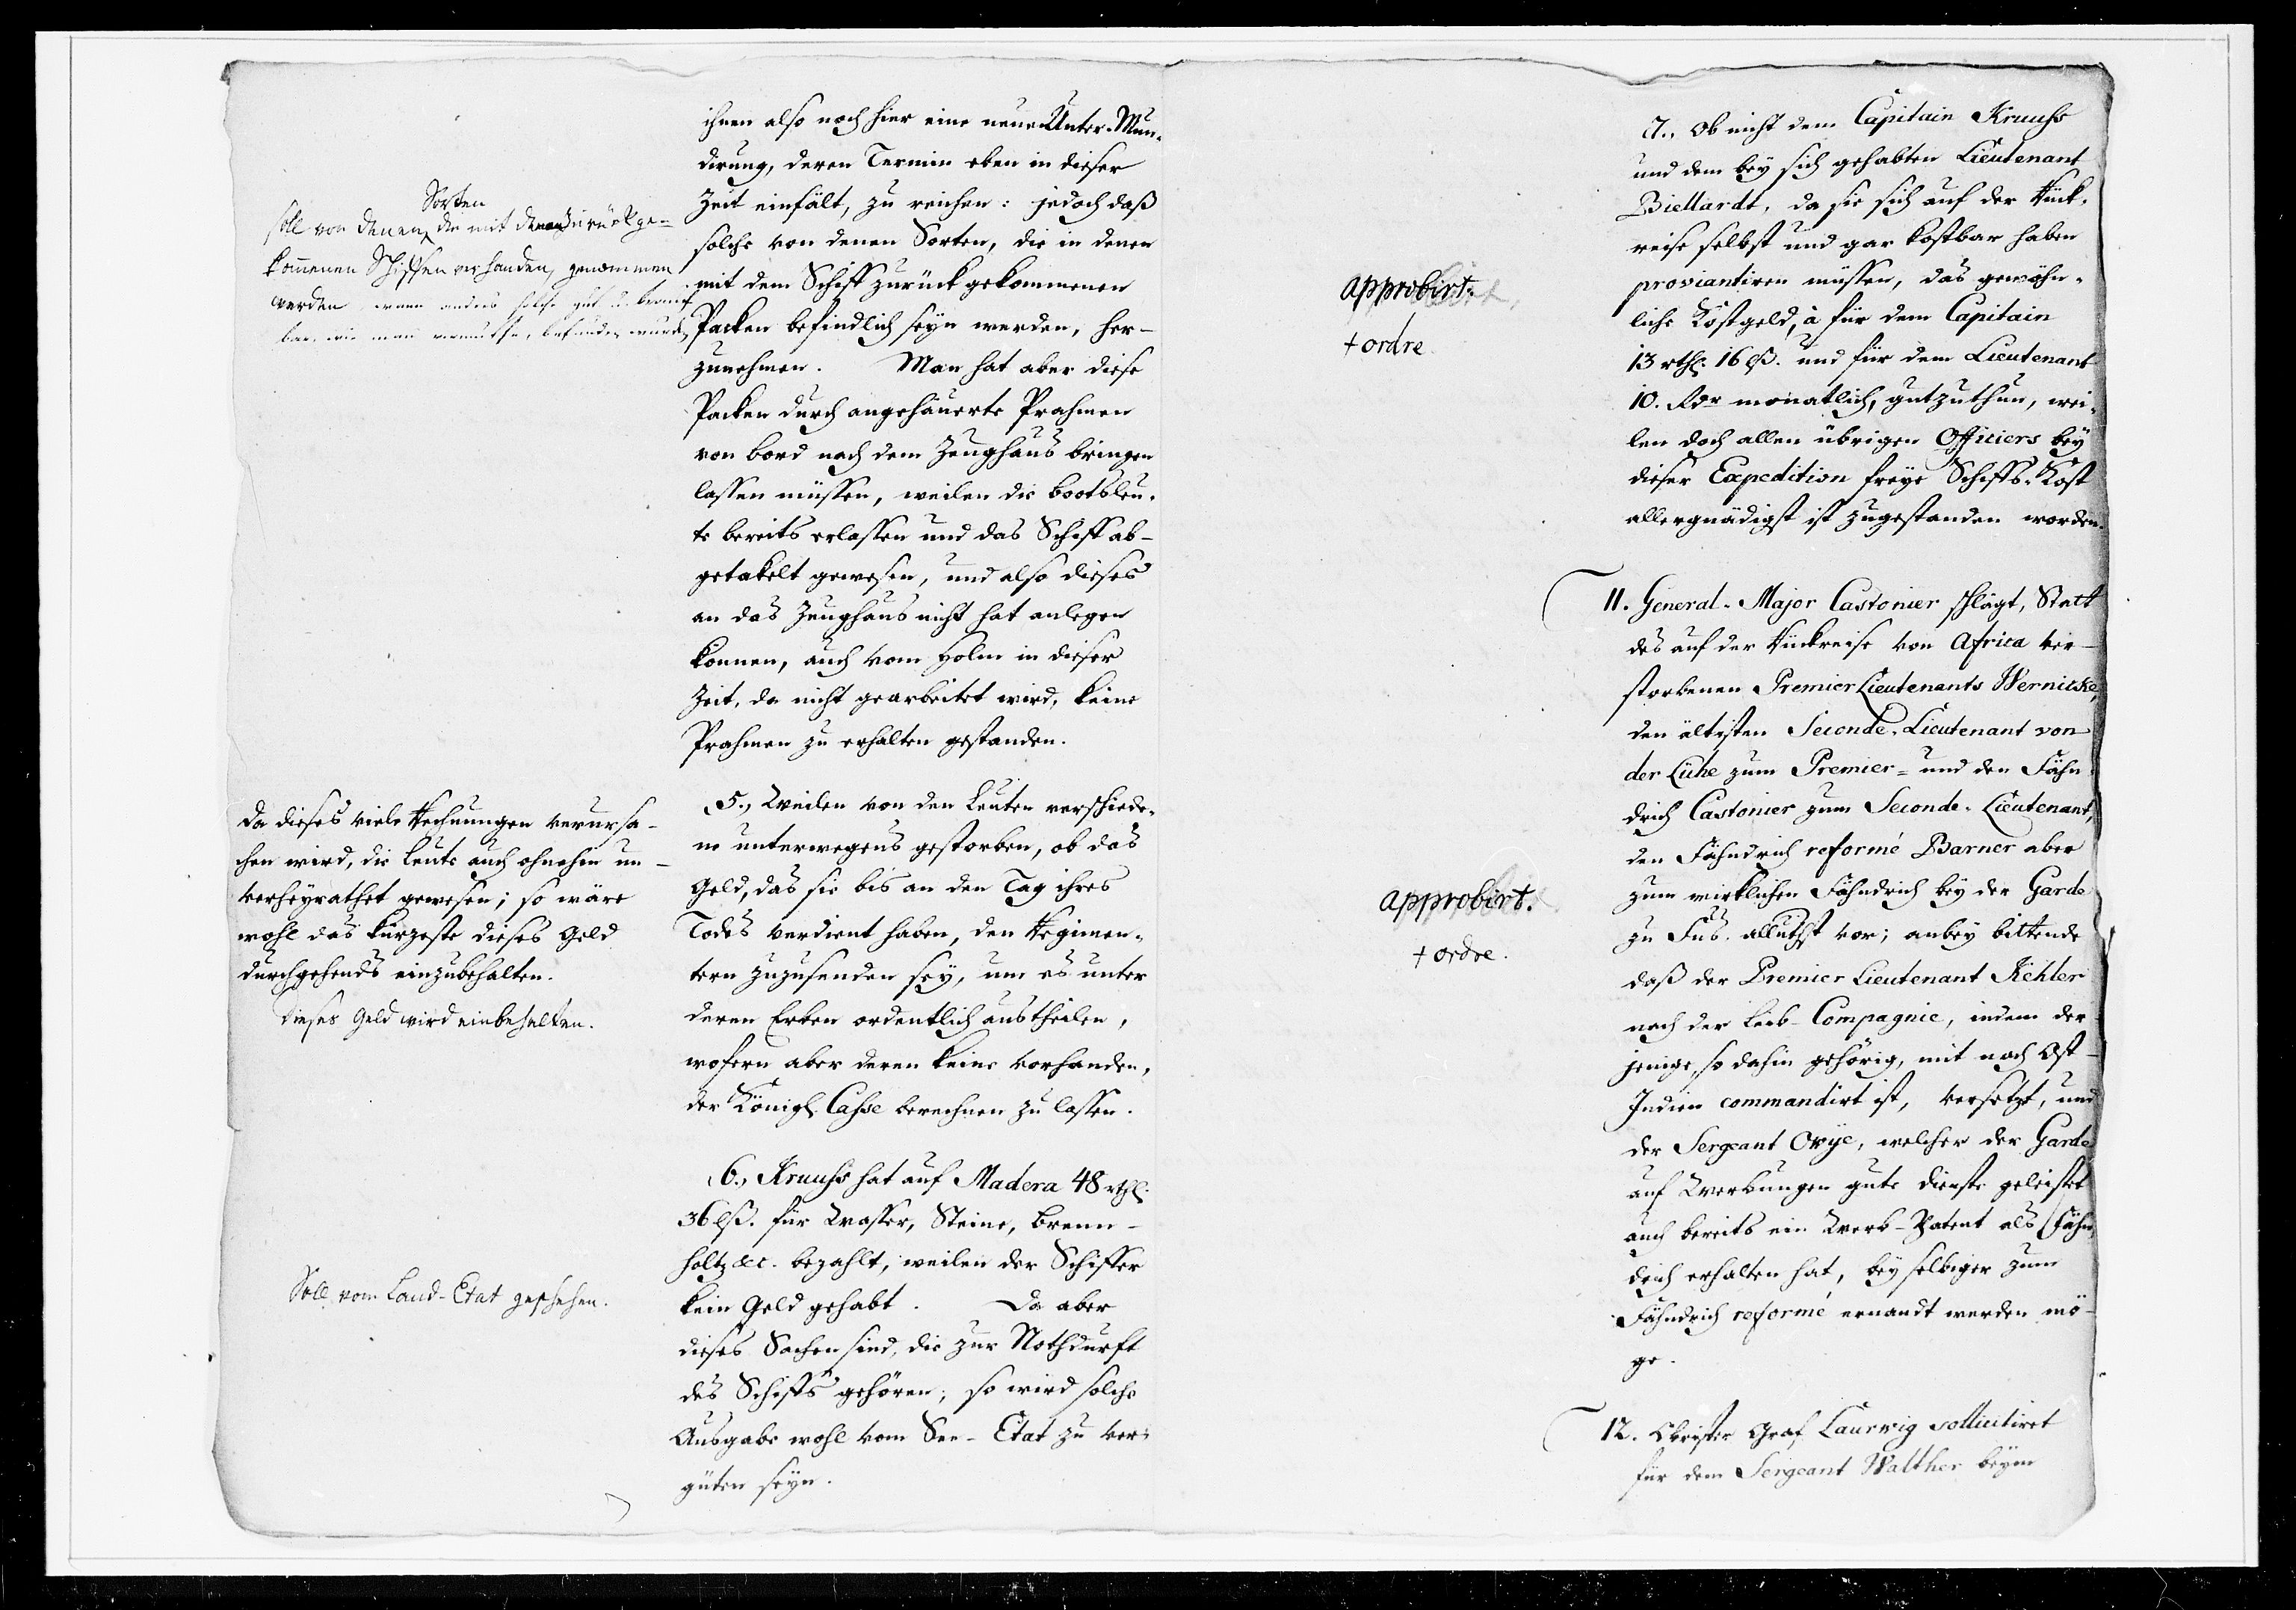 ihnen also noch hier eine neue Unter-Mun-
dirung, deren Termin eben in dieser
Zeit einfält, zu reichen: jedoch daß
solche von denen Sorten, die in denen
mit dem Schiff zurückgekommenen
Packen befindlich seyn werden, her-
zunehmen. Man hat aber diese
Packen durch angeheuerte Prahmen
von bord nach dem Zeughaus bringen
lassen müssen, weilen die bootsleu-
te bereits erlassen und das Schiff ab-
getakelt gewesen, und also dieses
an das Zeughaus nicht hat anlegen
können, auch vom Holm in dieser
Zeit, da nicht gearbeitet wird, keine
Prahmen zu erhalten gestanden.
Sorten
soll von denen, die mit denen zurückge-
kommenen Schiffen verhanden, genommen
werden, wenn anders solche gut u. brauch
bar, wie man vermuthe, befunden wurde
5., Weilen von den Leuten verschiede-
ne unterwegens gestorben, ob das
Geld, das sie bis an den Tag ihres
Todes verdient haben, den Regimen-
tern zuzusenden sey, um es unter
deren Erben ordentlich austheilen,
wofern aber deren keine vorhanden,
der Königl. Casse berechnen zu lassen.
Da dieses viele Rechnungen verursa-
chen wird, die Leute auch ohnehin un-
verheyrathet gewesen; so wäre
wohl das kürzeste dieses Geld
durchgehends einzubehalten.
Dieses Geld wird einbehalten.
6., Kruuhs hat auf Madera 48 rthl.
36 lß. für Wasser, Steine, Brenn-
holtz &c. bezahlt, weilen der Schiffer
kein Geld gehabt. Da aber
dieses Sachen sind, die zur Nothdurft
des Schiffs gehören; so wird solche
Ausgabe wohl vom See-Etat zu ver-
güten seyn.
Soll vom Land-Etat geschehen.
7., Ob nicht dem Capitain Kruuhs
und dem bey sich gehabten Lieutenant
Biellardt, da sie sich auf der Rück-
reise selbst und gar kostbar haben
proviantiren müssen, das gewöhn-
liche Kostgeld, à für dem Capitain
13 rthl. 16 lß. und für dem Lieutenant
10. Rdr monatlich, gutzuthun, wei-
len doch allen übrigen Officiers bey
dieser Expedition freye Schiffs-Kost
allergnädigst ist zugestanden worden.
approbirt.
+ ordre
11. General-Major Castonier schlägt, Statt
des auf der Rückreise von Africa ver-
storbenen Premier Lieutenants Wernicke,
den ältisten Seconde-Lieutenant von
der Lühe zum Premier- und den Fähn
drich Castonier zum Seconde-Lieutenant,
den Fähndrich reformé Barner aber
zum wirklichen Fähndrich bey der Garde
zu Fus. alluthst vor; anbey bittende
daß der Premier Lieutenant Kehler
nach der Leib-Compagnie, indem der
jenige, so dahin gehörig, mit nach Ost-
Indien commandirt ist, versetzt, und
der Sergeant Ovye, welcher der Garde
auf Werbungen gute dienste geleistet
auch bereits ein Werb-Patent als Fähn-
drich erhalten hat, bey selbiger zum
Fähndrich reformé ernandt werden mö-
ge.
approbirt.
+ ordre.
12. Obrister Graf Laurvig sollicitiret
für dem Sergeant Walther beym